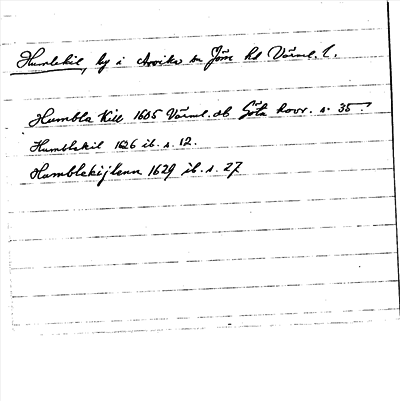 Humlekil, by i Arvika sn Jösse hd Värml. l.
Humble Kill 1605 Värml. ob Göta hovr. s. 35
Humblekil 1626 ib. s. 12.
Humblekijlenn 1629 ib. s. 27